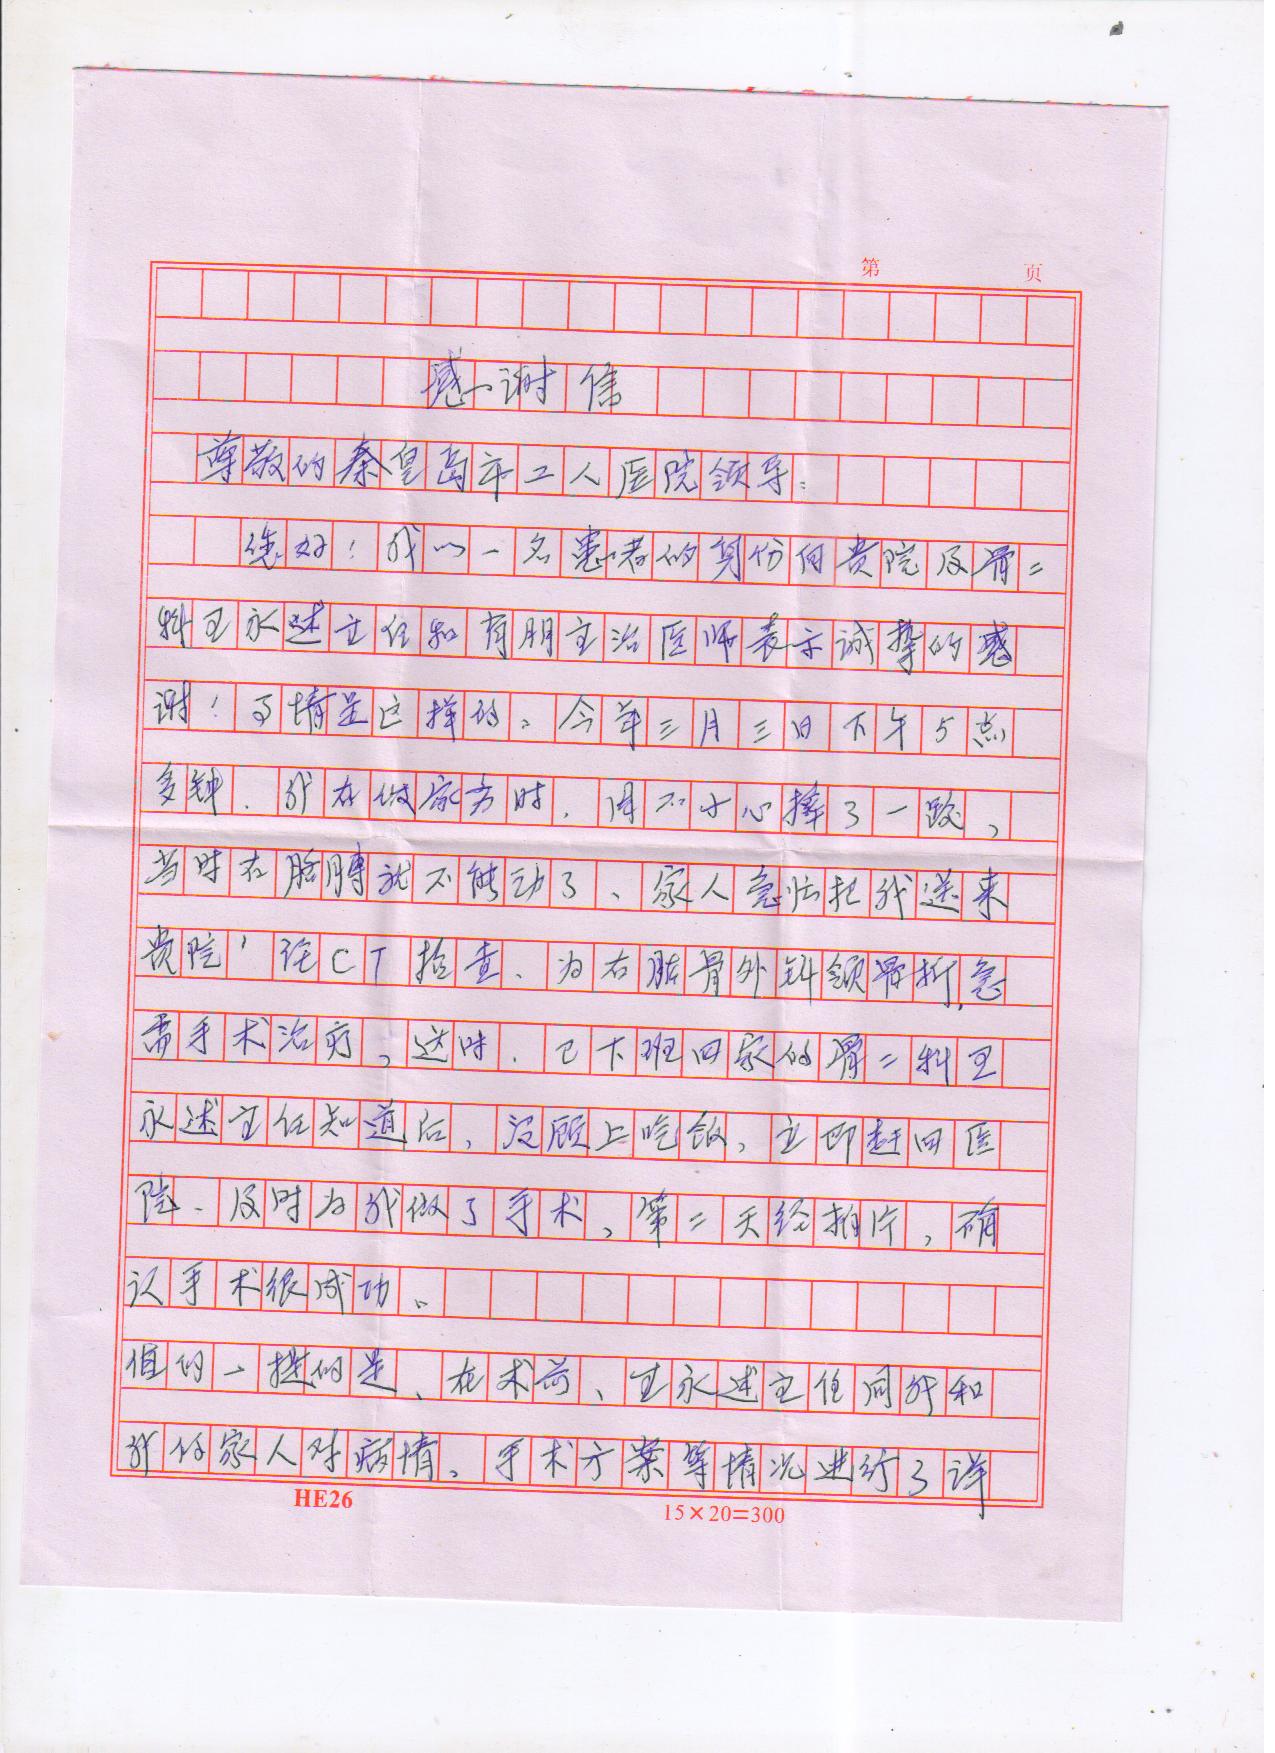 第 页
感谢信
尊敬的秦皇岛市工人医院领导：
您好！我以一名患者的身份向贵院及骨二
科王永述主任和肖朋主治医师表示诚挚的感
谢！事情是这样的。今年三月三日下午5点
多钟，我在做家务时，因不小心摔了一跤，
当时右胳膊就不能动了、家人急忙把我送来
贵院，经CT检查、为右肱骨外科颈骨折，急
需手术治疗，这时，已下班回家的骨二科王
永述主任知道后，没顾上吃饭，立即赶回医
院、及时为我做了手术，第二天经拍片，确
认手术很成功、
值的一提的是、在术前、王永述主任同我和
我的家人对病情、手术方案等情况进行了详
HE26 15×20=300